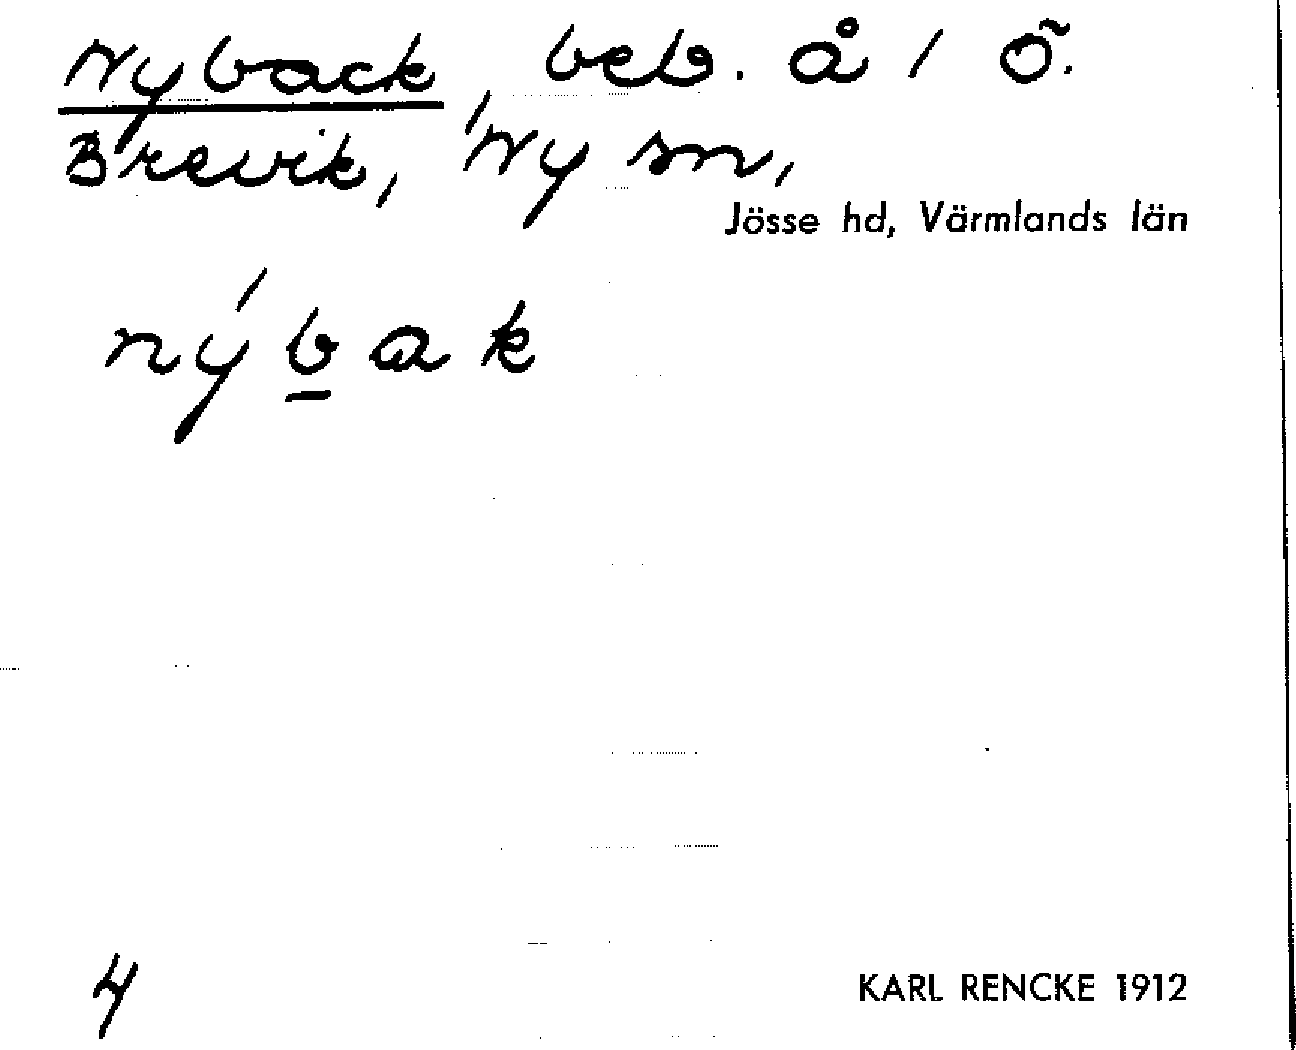 Nyback, beb. å 1 Ö.
Brevik, Ny sn,
Jösse hd, Värmlands län
nýbak
4
KARL RENCKE 1912